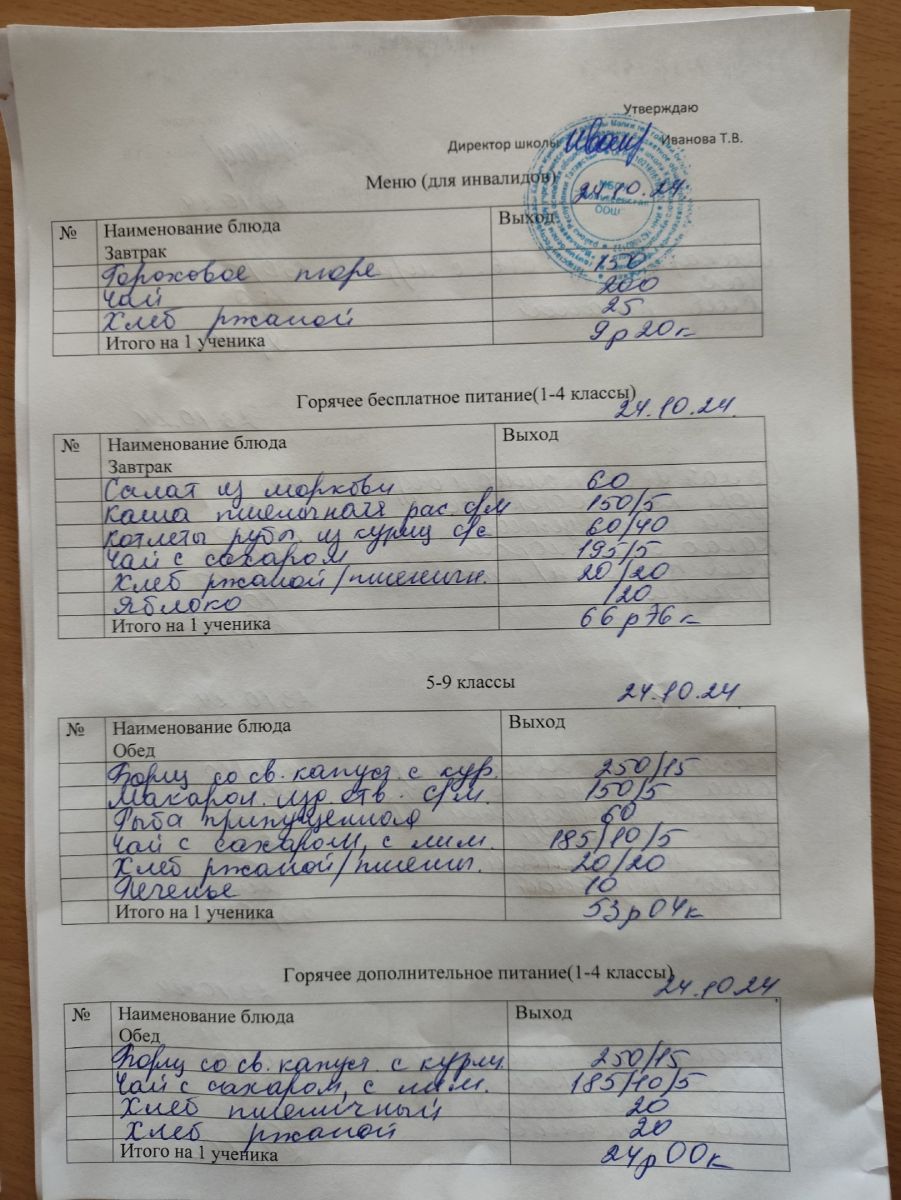 Утверждаю
Директор школы Иванова Т.В.
Меню (для инвалидов) 24.10.24
№ Наименование блюда Выход
Завтрак
Гороховое пюре 150
Чай 200
Хлеб ржаной 25
Итого на 1 ученика 9р20к
Горячее бесплатное питание(1-4 классы)
24.10.24.
№ Наименование блюда Выход
Завтрак
Салат из моркови 60
Каша пшеничная рас. с/м 150/5
Котлеты рубл. из куриц с/с 60/40
Чай с сахаром 195/5
Хлеб ржаной/пшеничн. 20/20
Яблоко 120
Итого на 1 ученика 66р76к
5-9 классы 24.10.24
№ Наименование блюда Выход
Обед
Борщ со св. капуст. с кур. 250/15
Макарон. изд. отв. с/м. 150/5
Рыба припущенная 60
Чай с сахаром, с лим. 185/10/5
Хлеб ржаной/пшенич. 20/20
Печенье 10
Итого на 1 ученика 53р04к
Горячее дополнительное питание(1-4 классы)
24.10.24
№ Наименование блюда Выход
Обед
Борщ со св. капуст. с куриц. 250/15
Чай с сахаром, с лим. 185/10/5
Хлеб пшеничный 20
Хлеб ржаной 20
Итого на 1 ученика 24р00к